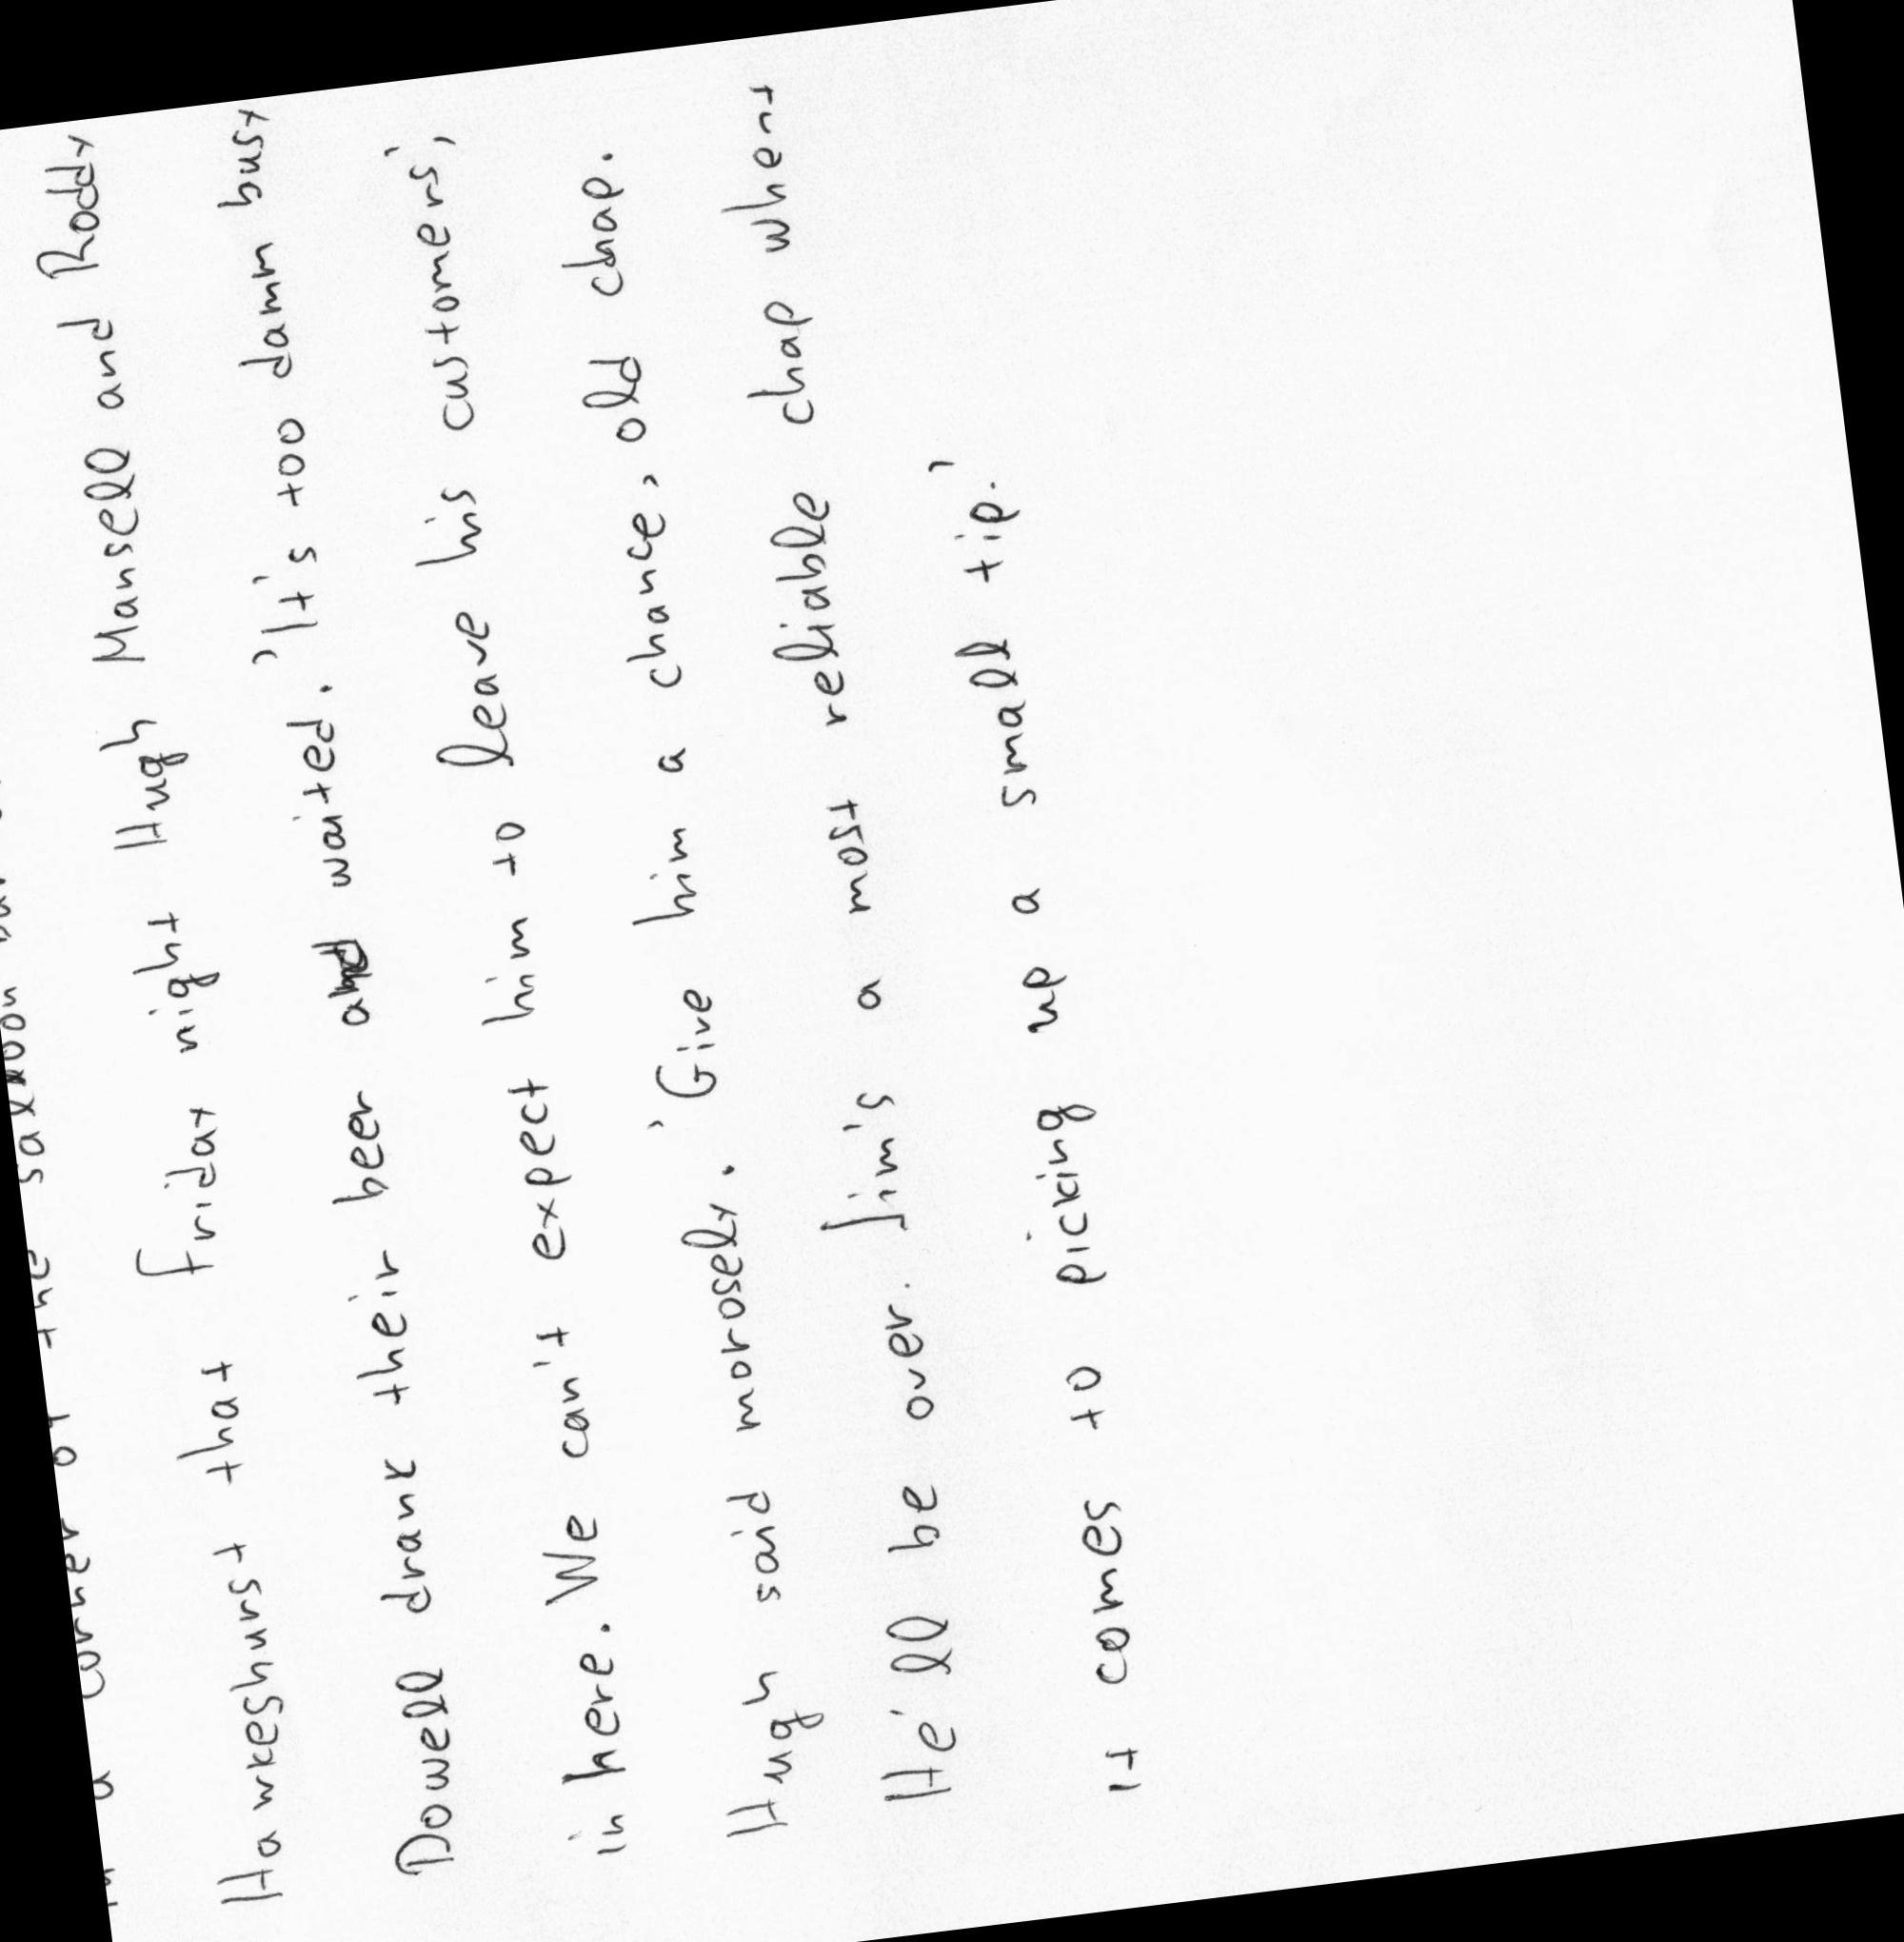 a corner of the saloon
Hawkeshurst that Friday night Hugh Mansell and Roddy
Dowell drank their beer and waited. 'It's too damn busy
in here. We can't expect him to leave his customers',
Hugh said morosely. 'Give him a chance, old chap.
He'll be over. Jim's a most reliable chap when
it comes to picking up a small tip.'